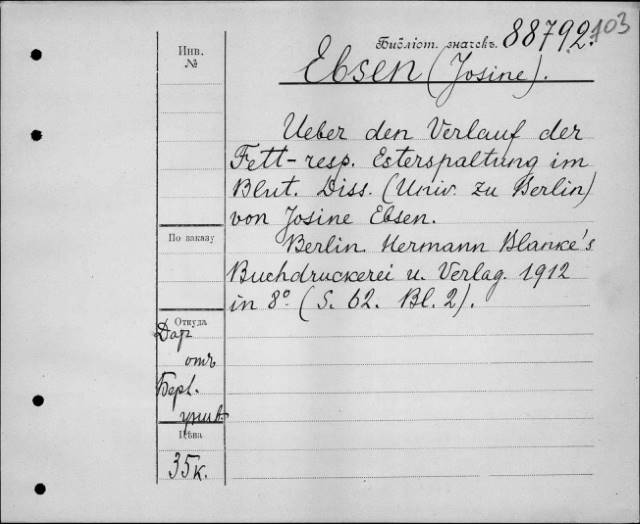 103
Библіот. значекъ. 88792.
Инв.
№
Ebsen (Josine).
Ueber den Verlauf der
Fett-resp. Esterspaltung im
Blut. Diss. (Univ. zu Berlin)
von Josine Ebsen.
По заказу
Berlin. Hermann Blanke's
Buchdruckerei u. Verlag. 1912
in 8º. (S. 62. Bl. 2).
Откуда
Дар
отъ
Берл.
унив.
Цѣна
35к.